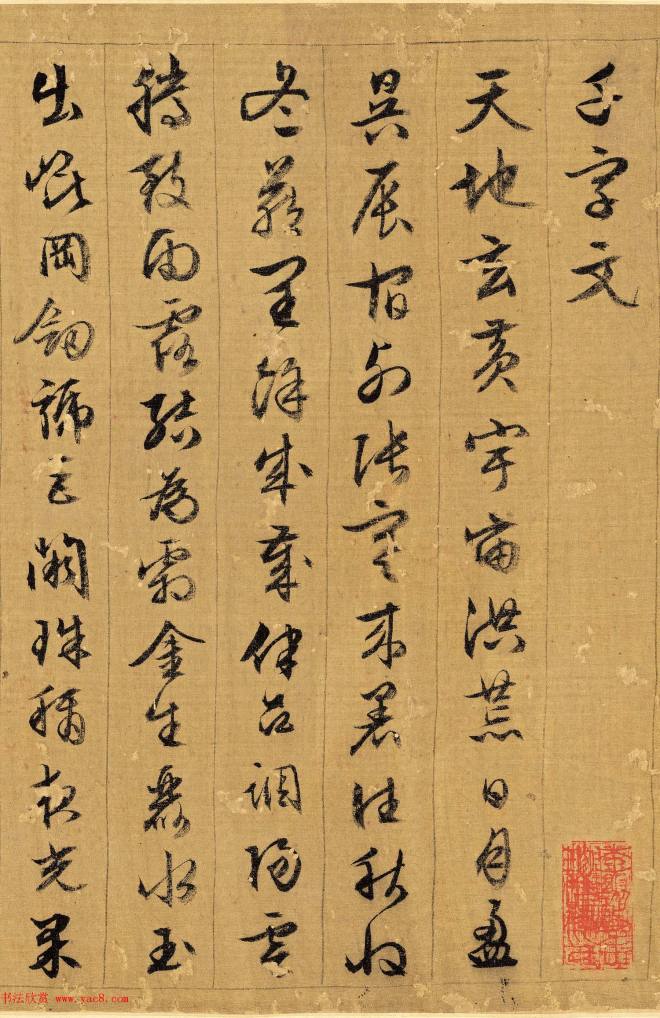 千字文
天地玄黄宇宙洪荒日月盈
昃辰宿列张寒来暑往秋收
冬藏闰馀成岁律吕调阳云
腾致雨露结为霜金生丽水玉
出崐冈剑号巨阙珠称夜光果
书法欣赏 www.yac8.com